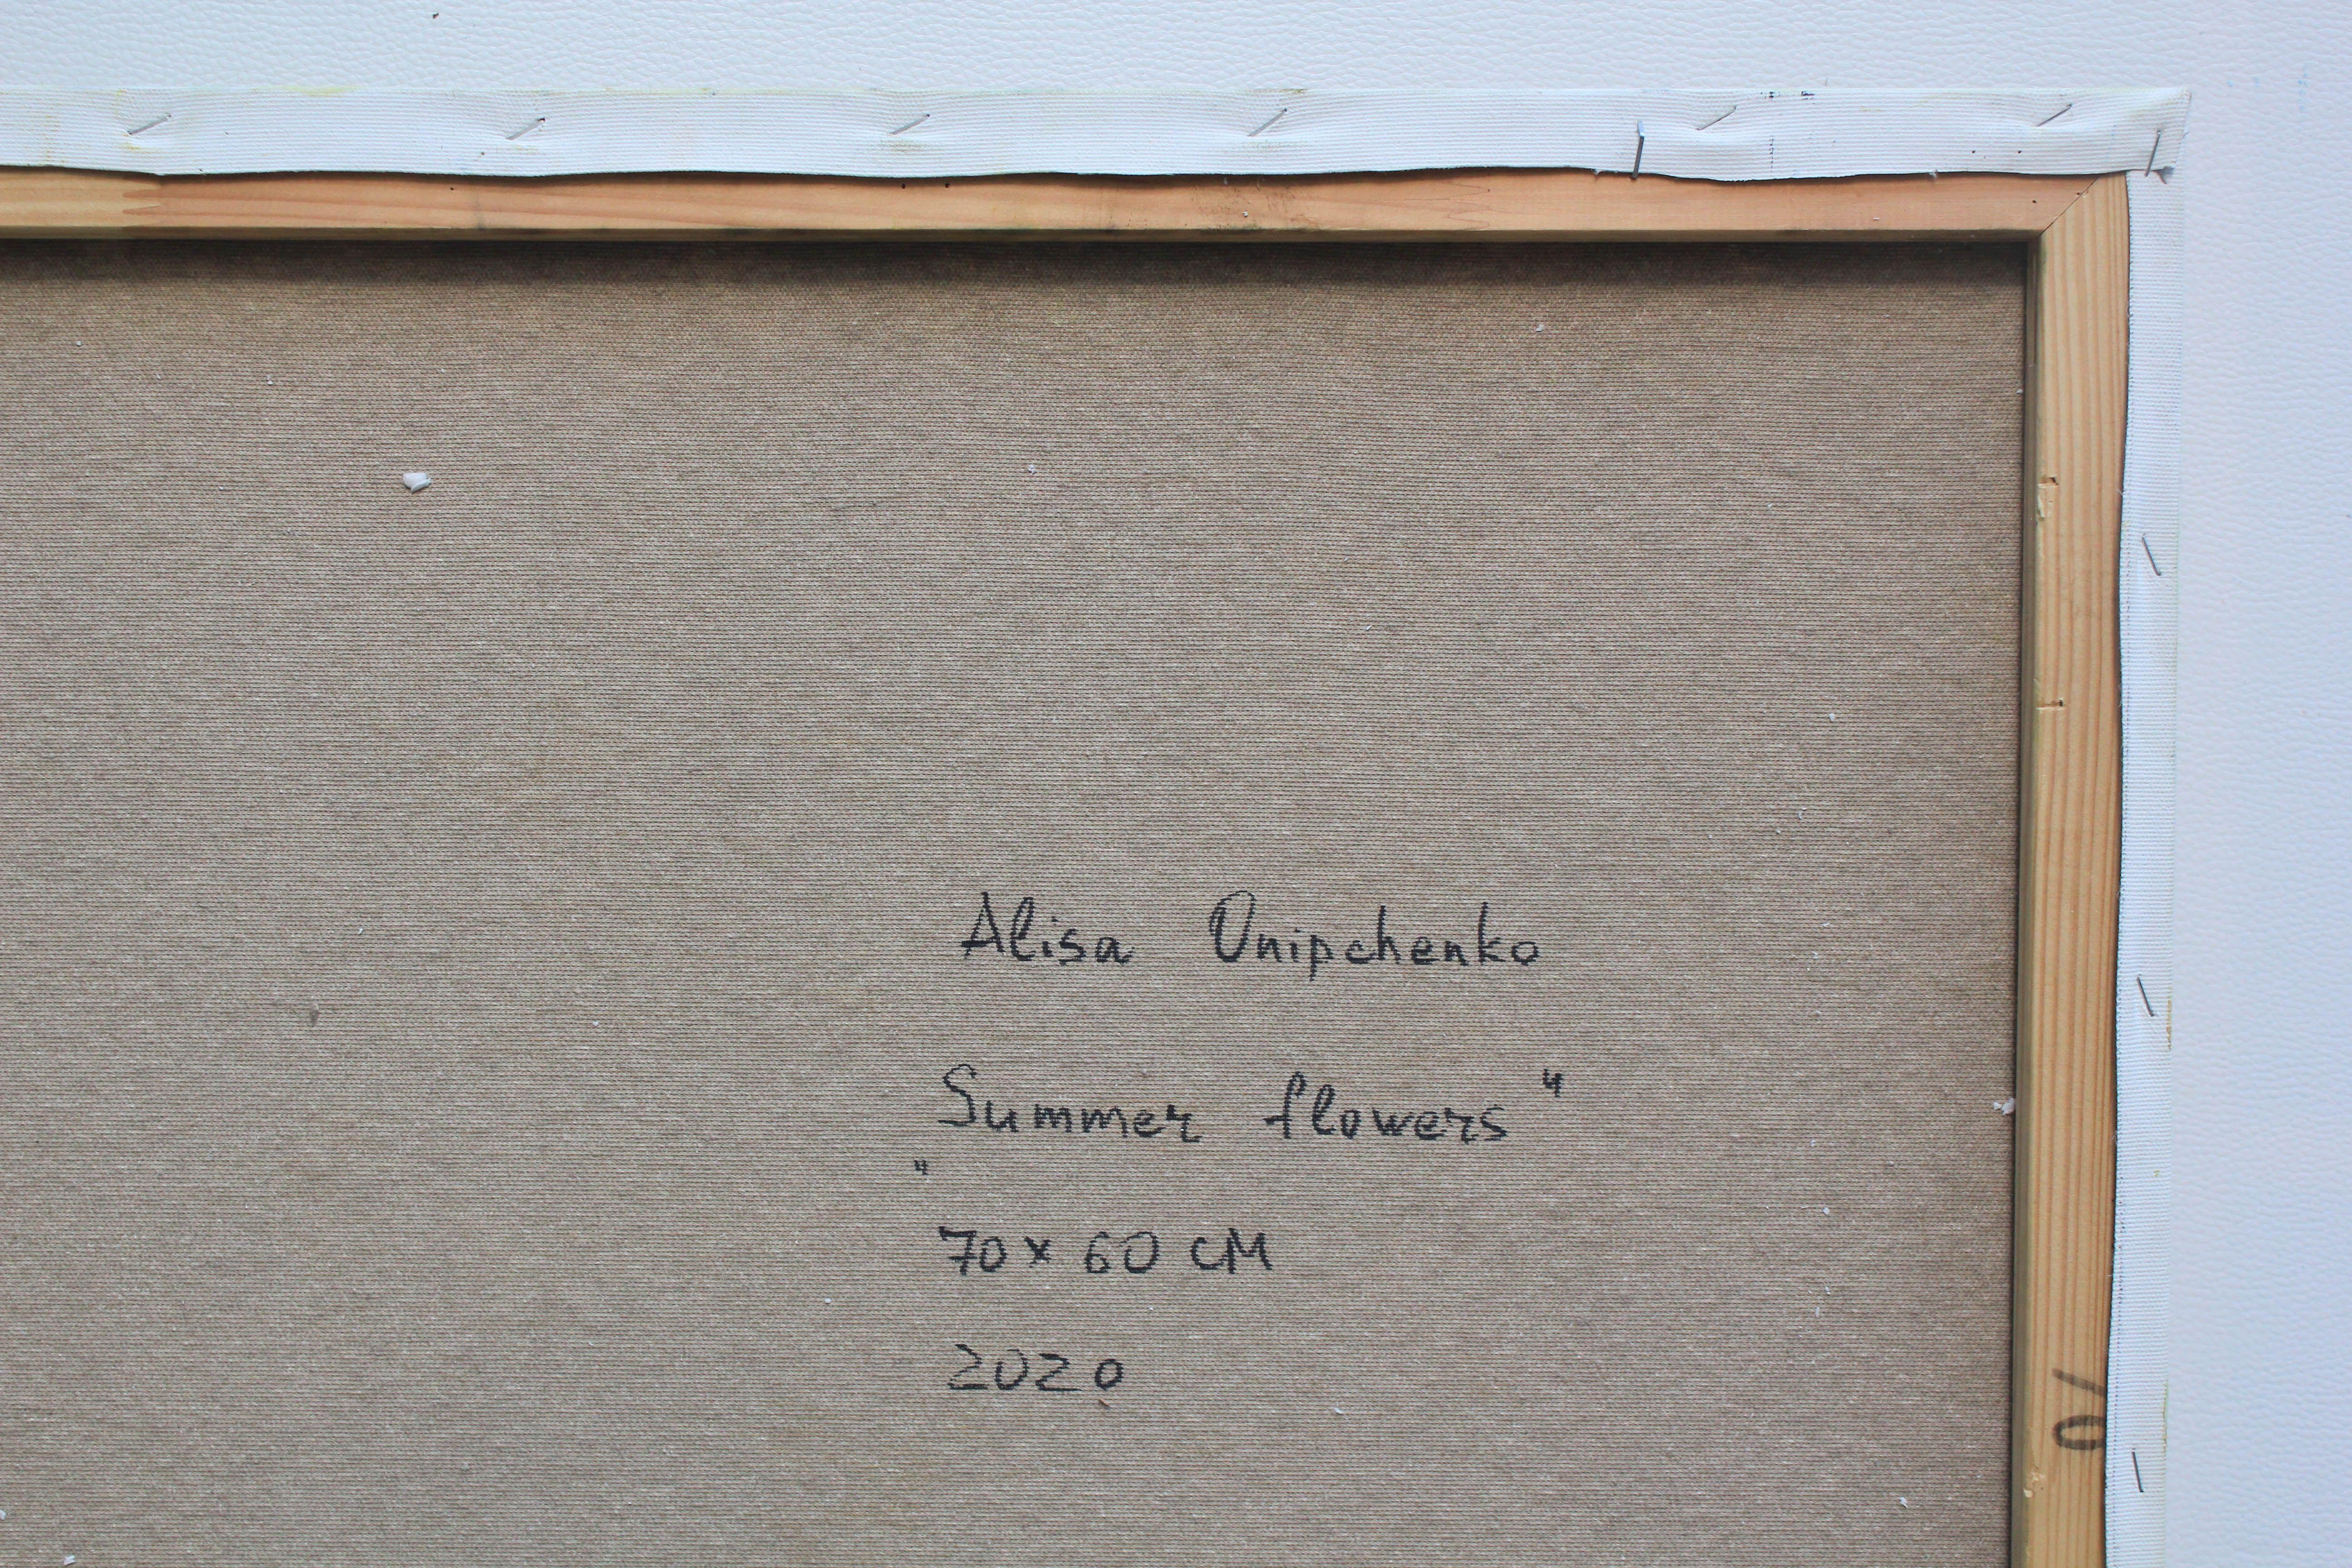 Alisa Onipchenko
"Summer flowers"
70 x 60 CM
2020